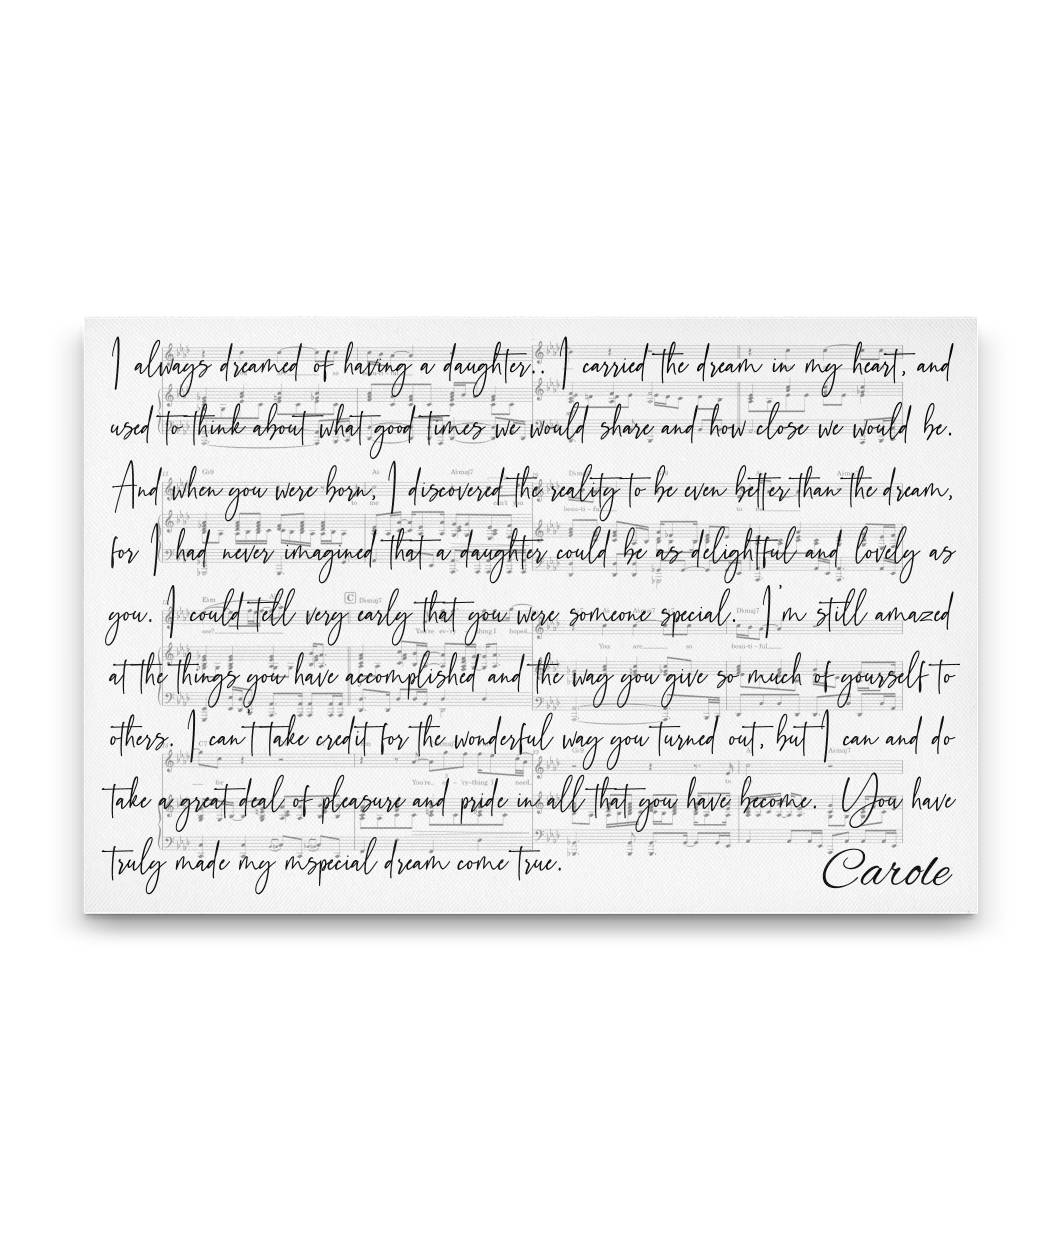 I always dreamed of having a daughter.. I carried the dream in my heart, and
used to think about what good times we would share and how close we would be.
And when you were born, I discovered the reality to be even better than the dream,
for I had never imagined that a daughter could be as delightful and lovely as
you. I could tell very early that you were someone special. I'm still amazed
at the things you have accomplished and the way you give so much of yourself to
others. I can't take credit for the wonderful way you turned out, but I can and do
take a great deal of pleasure and pride in all that you have become. You have
truly made my mspecial dream come true.
Carole